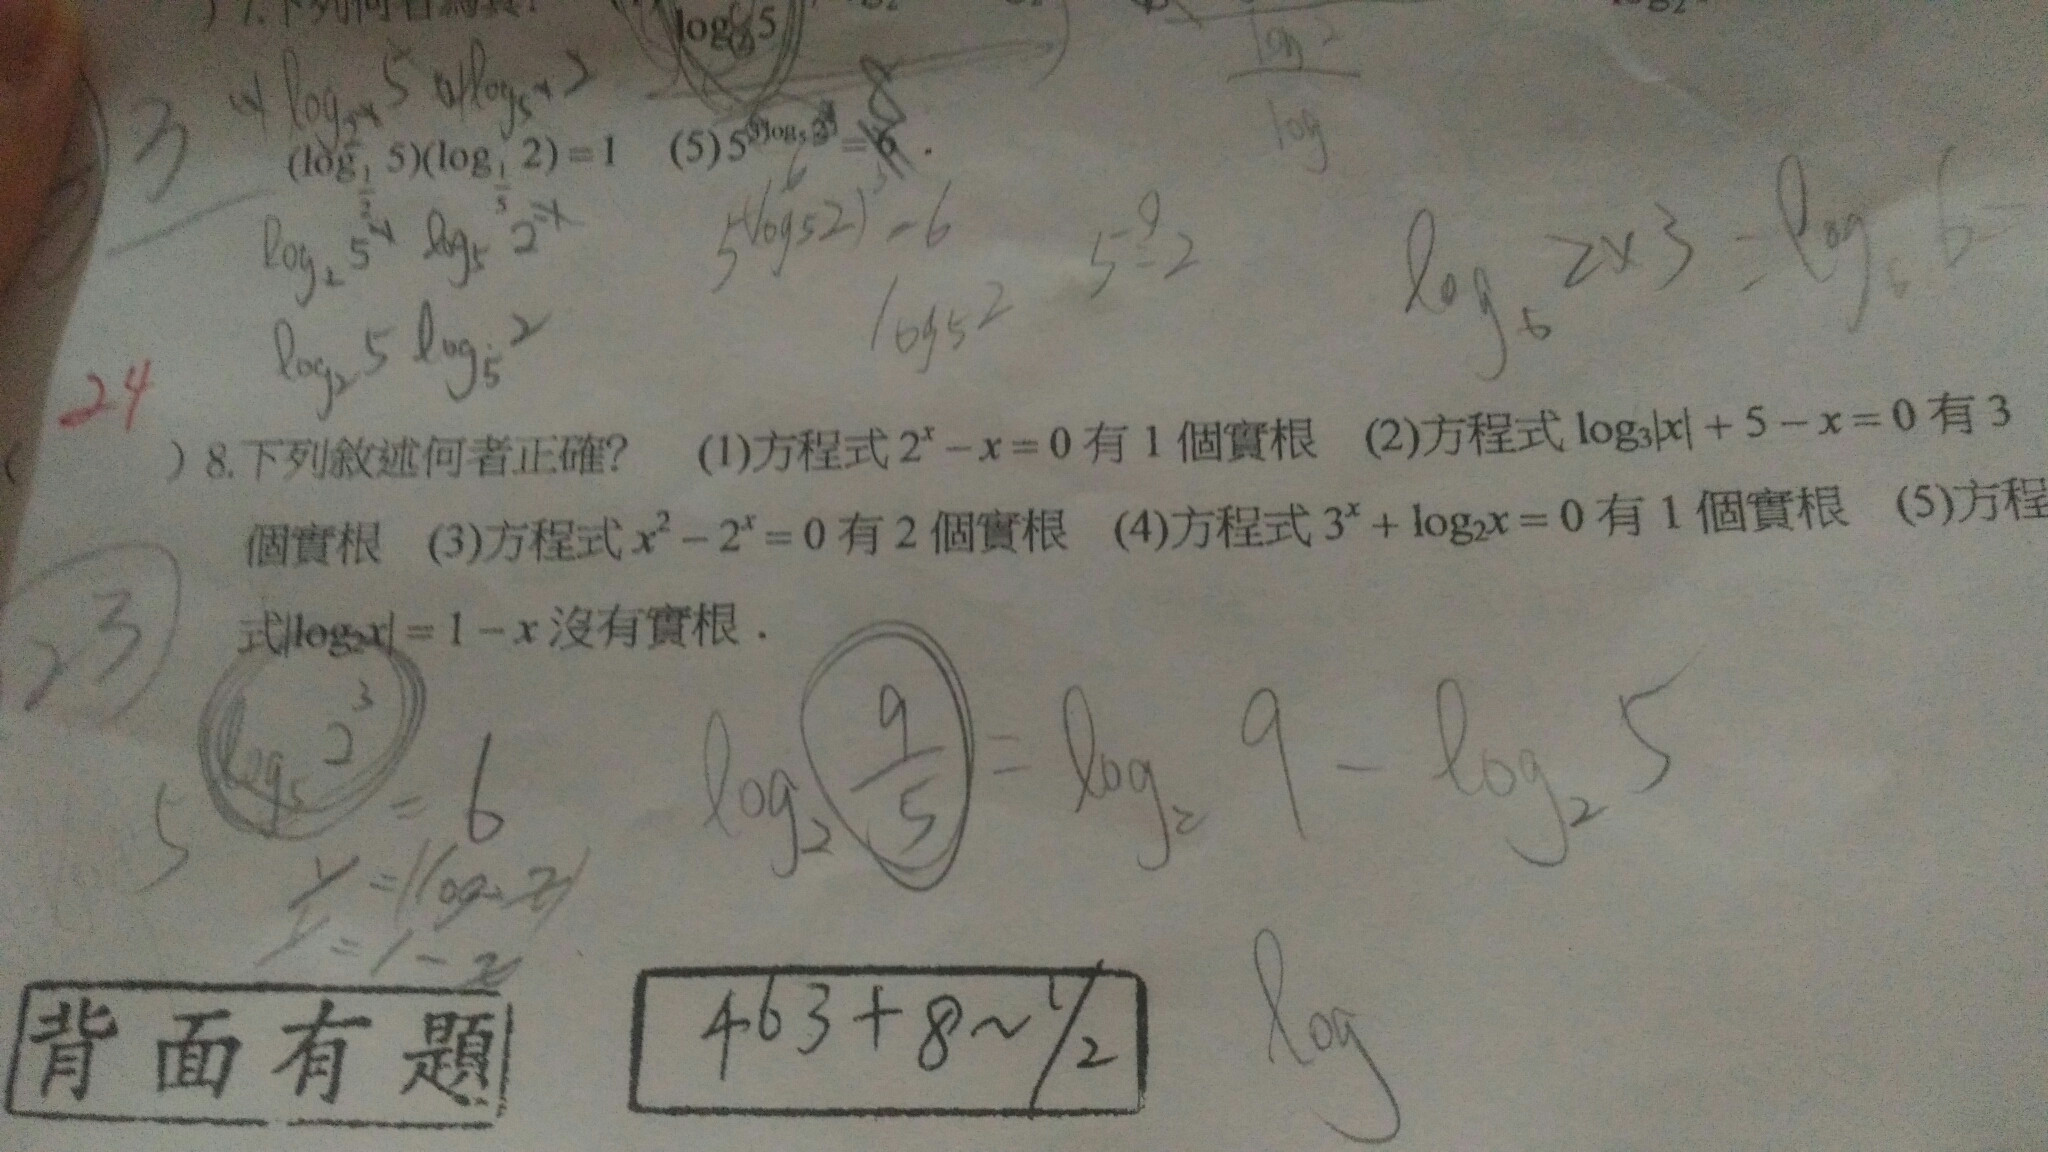 ) 7.下列何者為真?
log 5
log 2
log
3
(log_{1/2} 5)(log_{1/5} 2) = 1 (5) 5^{3log_5 2} = 6 . 8
log_2 5 log_5 2
5^{(log_5 2)} = 6
log_5 2
log_5 2×3 = log_5 6
log_2 5 log_5 2
24
( ) 8.下列敘述何者正確? (1)方程式 2^x − x = 0 有 1 個實根 (2)方程式 log_3|x| + 5 − x = 0 有 3
個實根 (3)方程式 x^2 − 2^x = 0 有 2 個實根 (4)方程式 3^x + log_2x = 0 有 1 個實根 (5)方程
式|log_2x| = 1 − x 沒有實根 .
23
5^{log_5 2^3} = 6
log_2 9/5 = log_2 9 − log_2 5
y = 1 − x
背面有題
463+8~1/2
log